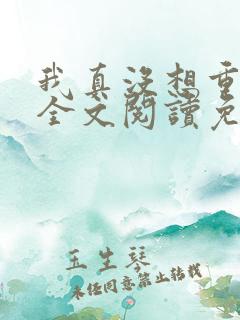 我真没想重
全文閱讀免
玉生琴
未经同意禁止转载